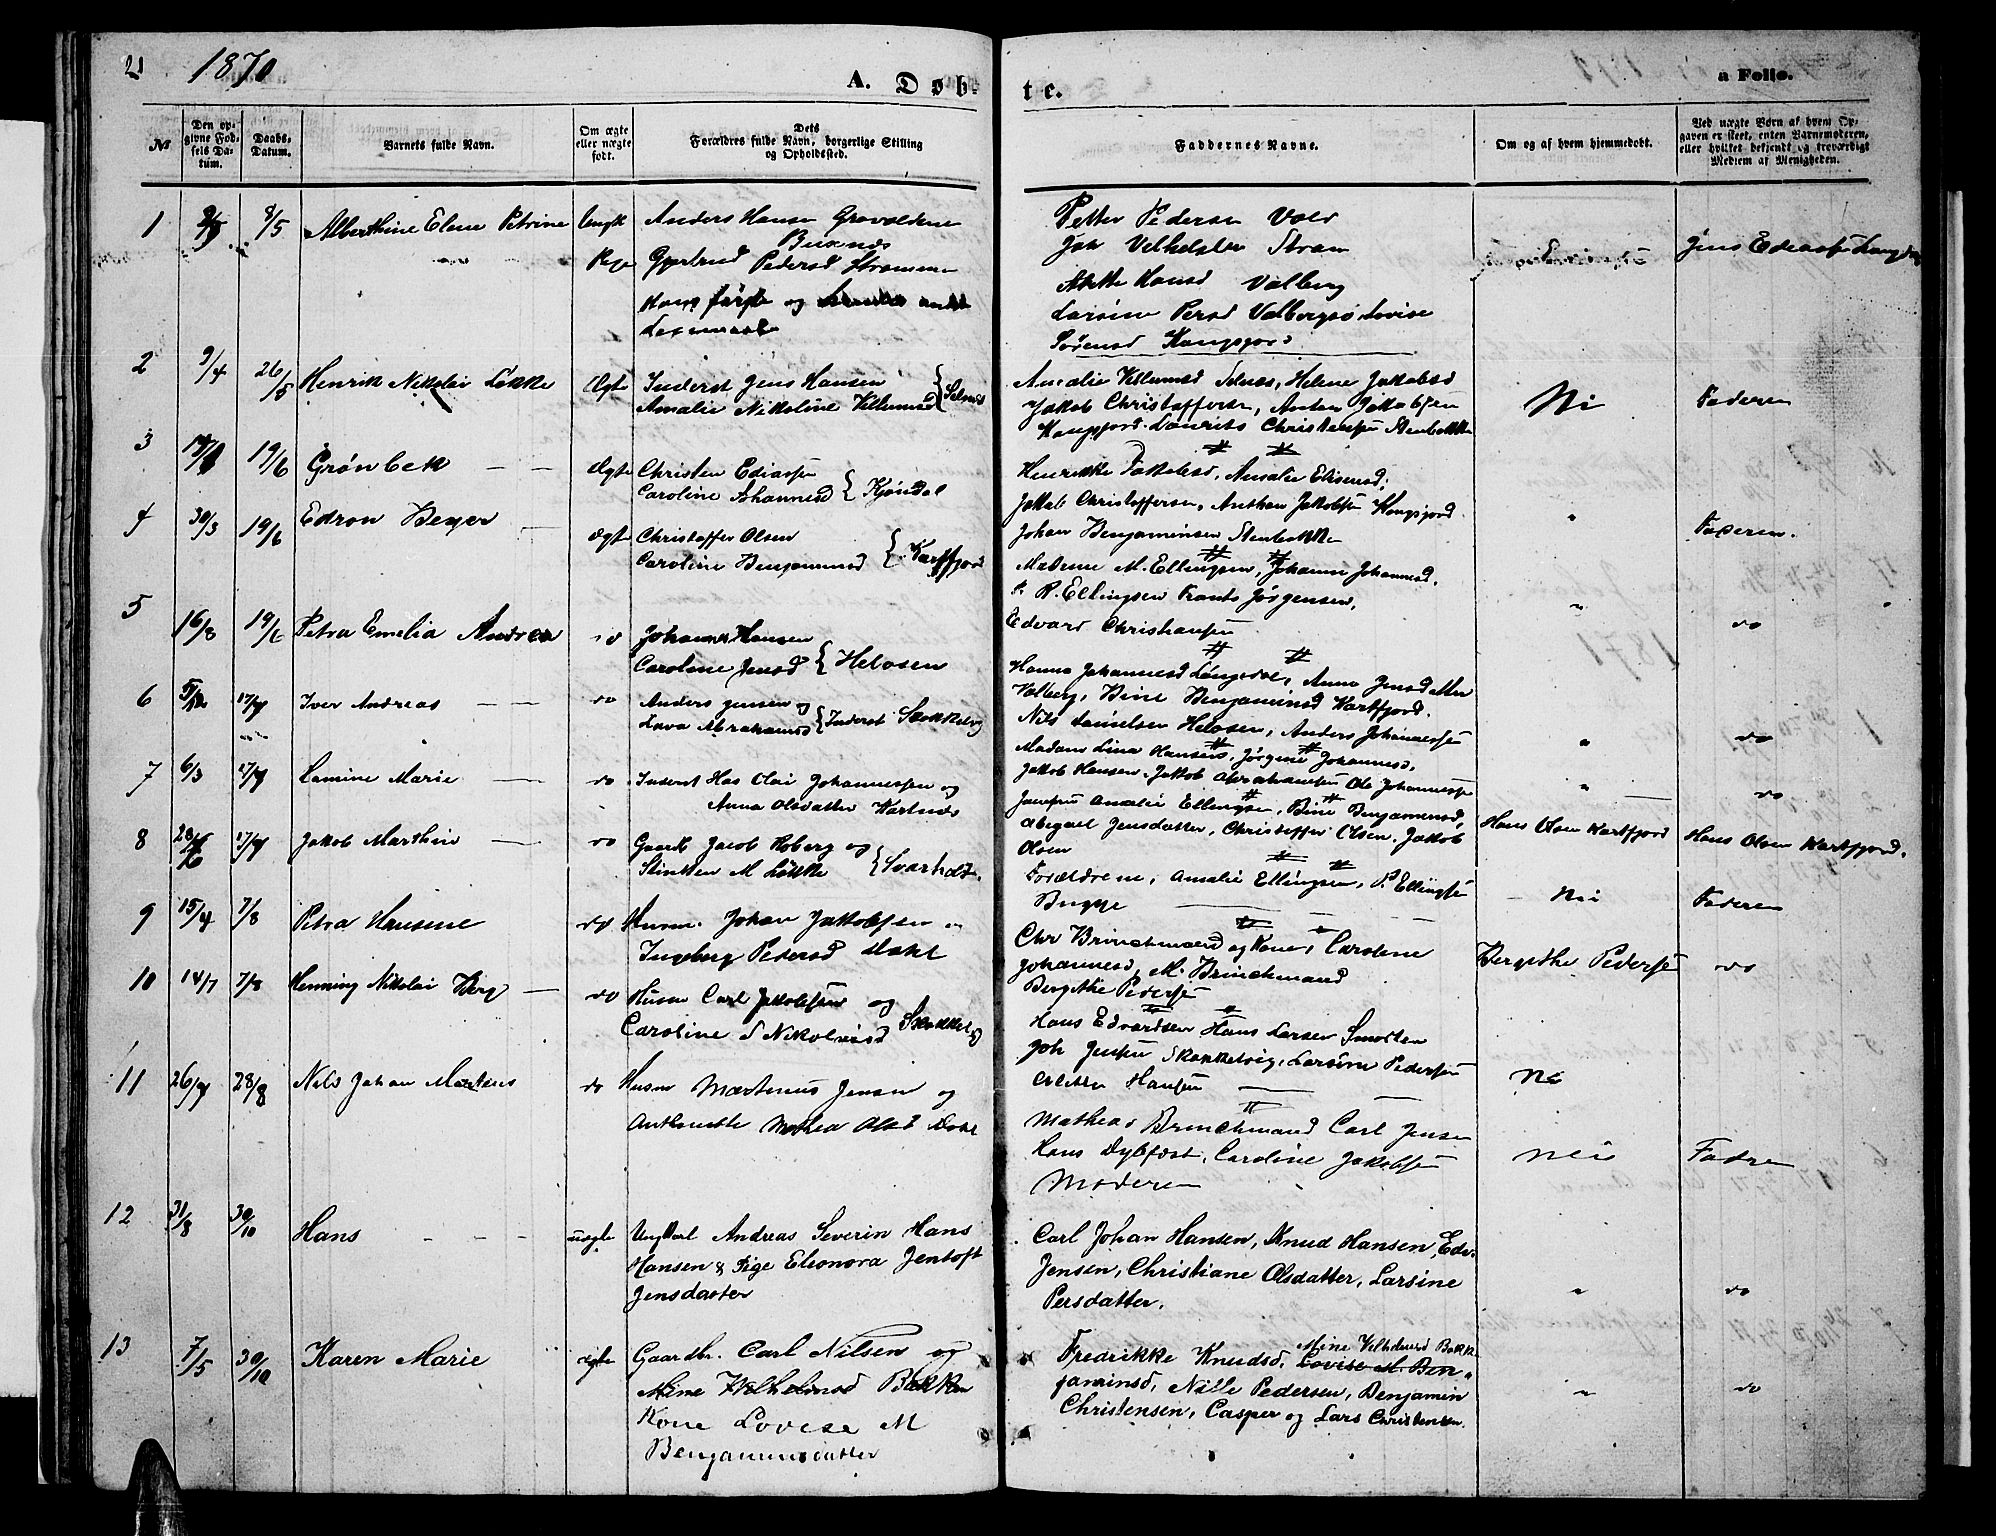 2
1870
A. Døb-
te.
a Folio.
№
Den opgivne Fødsels Datum.
Daabs-Datum.
Barnets fulde Navn.
Om ægte eller uægte født.
Dets Forældres fulde Navn, borgerlige Stilling og Opholdssted.
Faddernes Navne.
Om og af hvem hjemmedøbt.
Ved uægte Børn af hvem Opgaven er skeet, enten Barnemoderen, eller hvilket bekjendt og troværdigt Medlem af Menigheden.
1 8/5 Alberthine Elene Petrine Anders Hansen
Buxnæs
Pige Gjertrud Pedersd Strømmen
Petter Pedersen Vold
Joh Vilhelmsen Strøm
Hansd Valberg
Larsine Persd Valbergsø Lovise
Sørensd Kongsjord
Jens
2 9/4 26/5 Henrik Nikolai Løkke Ægte Inderst Jens Hansen
Amalie Nikoline Villumsd Selnæs
Amalie Villumsd Selnæs, Helene Jakobsd
Jakob Christoffersen, Anton Jakobsen
Kongsjord. Laurits Christensen Stenbakke
Nei Faderen
3 19/6 Grønbek Ægte Christen Ediassen
Caroline Johannesd Kjøndal
Henrikke Jakobsd, Amalie Elisensd,
Jakob Christoffersen, Anthon Jakobsen Kongsjord
Johan Benjaminsen Stenbakke
" Faderen.
4 30/3 19/6 Edron Beyer ægte Christoffer Olsen
Caroline Benjaminsd Kartfjord
Madame M. Ellingsen, Johanne Johannesd.
P. R. Ellingsen Frants Jørgensen,
Edvard Christiansen
" do
5 16/3 19/6 Petra Emelia Andrea do Johannes Hansen
Caroline Jensd Helosen
Hanna Johannesd Langedal, Anna Jensdatter
Valberg, Bine Benjaminsd Kartfjord.
Nils Danielsen Helosen, Anders Johannessen
" do
6 17/7 Iver Andreas do Anders Jensen og
Lava Abrahamsd Inderst Skokkelvig
Madam Lina Hansen, Jørgine Johannesd,
Jakob Hansen. Jakob Abrahamsen Ole Johannessen
" do
7 6/3 17/7 Lamine Marie do Inderst Has Olai Johannessen og
Anna Olsdatter Kartnæs
Amalie Ellingsen, Bine Benjaminsd,
Abigael Jensdatter, Christoffer Olsen, Jakob
Olsen
Hans Olsen Kartfjord Hans Olsen Kartfjord.
8 17/7 Jakob Marthin do Gaardb Jacob Hoberg og
Stinken M Løkke Svarholt.
Forældrene, Amalie Ellingsen, P. Ellingsen
Bugge
Nei Faderen
9 15/4 7/8 Petra Hansine do Husm. Johan Jakobsen og
Ingeberg Pedersd Dahl
Chr Brinchmand og Kone, Caroline
Johannesd, M. Brinchmand
Bergithe Pedersen
Bergithe Pedersen do
10 14/7 7/8 Henning Nikolai Berg do Husm Carl Jakobsen og
Caroline S Nikolaisd Skokkelvig
Hans Edvardsen Hans Larsen Smolten
Joh Jensen Skokkelvig, Larsine Pedersen
Aletta Hansen
Nei
11 26/7 28/8 Nils Johan Martens do Husm Martenius Jensen og
Anthonette Mathea Olsd Dahl
Mathea Brinchmand Carl Jensen
Hans Dybfest, Caroline Jakobsen
Moderen
Nei Fadren
12 31/8 30/10 Hans uægte Ungkarl Andreas Severin Hans
Hansen & Pige Eleonora Jentoft
Jensdatter
Carl Johan Hansen, Knud Hansen, Edv.
Jensen, Christiane Olsdatter, Larsine
Persdatter.
" do
13 7/5 30/10 Karen Marie ægte Gaardbr. Carl Nilsen og
Mine Vilhelmsd Bakken
Kone Lovise M
Benjaminsdatter
Mine Vilhelmsd Bakk
Fredrikke Knudsd, Lovise M. Ben-
jaminsd, Nille Pedersen, Benjamin
Christensen, Casper og Lars Christensen.
" do